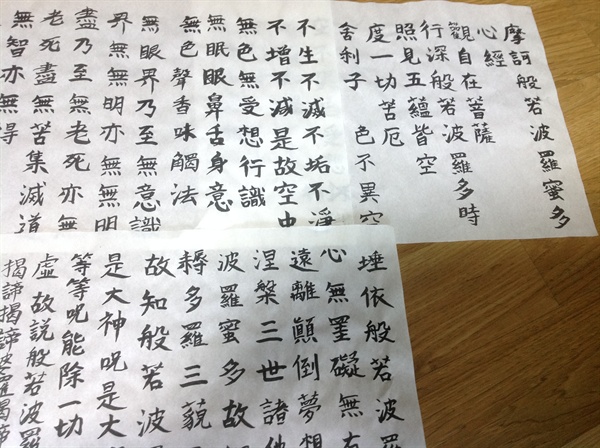 摩訶般若波羅蜜多
心經
觀自在菩薩
行深般若波羅多時
照見五蘊皆空
度一切苦厄
舍利子 色不異空
不生不滅不垢不淨
不增不滅是故空中
無色無受想行識
無眠眼鼻舌身意
無色聲香味觸法
無眼界乃至無意識
界無無明亦無無明
盡乃至無老死亦無
老死盡無苦集滅道
無智亦無得
埵依般若波羅
心無罣礙無
遠離顛倒夢想
涅槃三世諸
波羅蜜多故
耨多羅三藐
故知般若波
是大神呪是大
等等呪能除一切
虛故説般若波羅
揭諦揭諦波羅揭諦